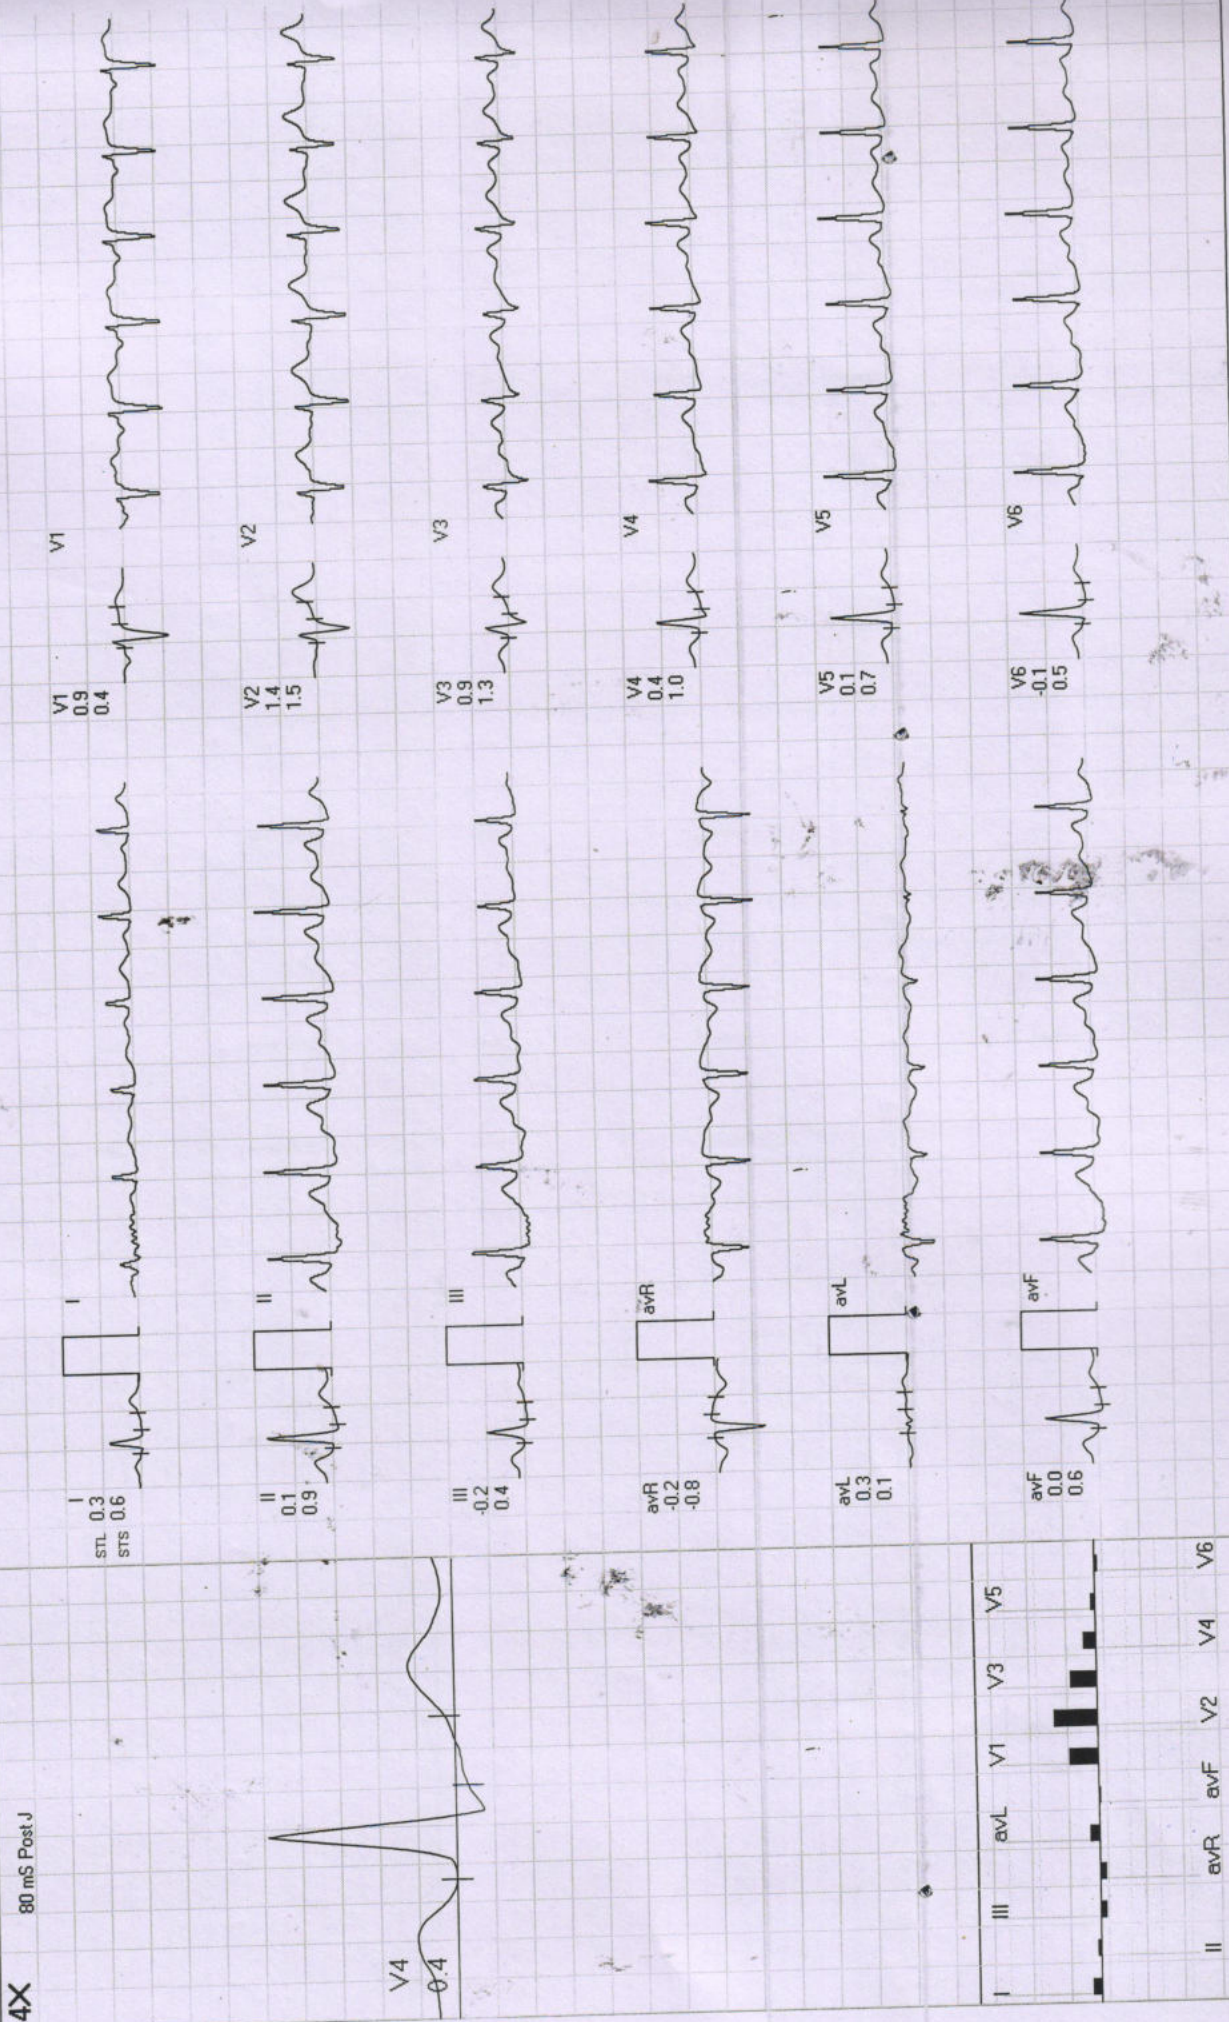 4X 80 mS Post J
V4
0.4
I
STL 0.3
STS 0.6
I
II
0.1
0.9
II
III
-0.2
0.4
III
avR
-0.2
-0.8
avR
avL
0.3
0.1
avL
avF
0.0
0.6
avF
V1
0.9
0.4
V1
V2
1.4
1.5
V2
V3
0.9
1.3
V3
V4
0.4
1.0
V4
V5
0.1
0.7
V5
V6
-0.1
0.5
V6
I III avL V1 V3 V5
II avR avF V2 V4 V6